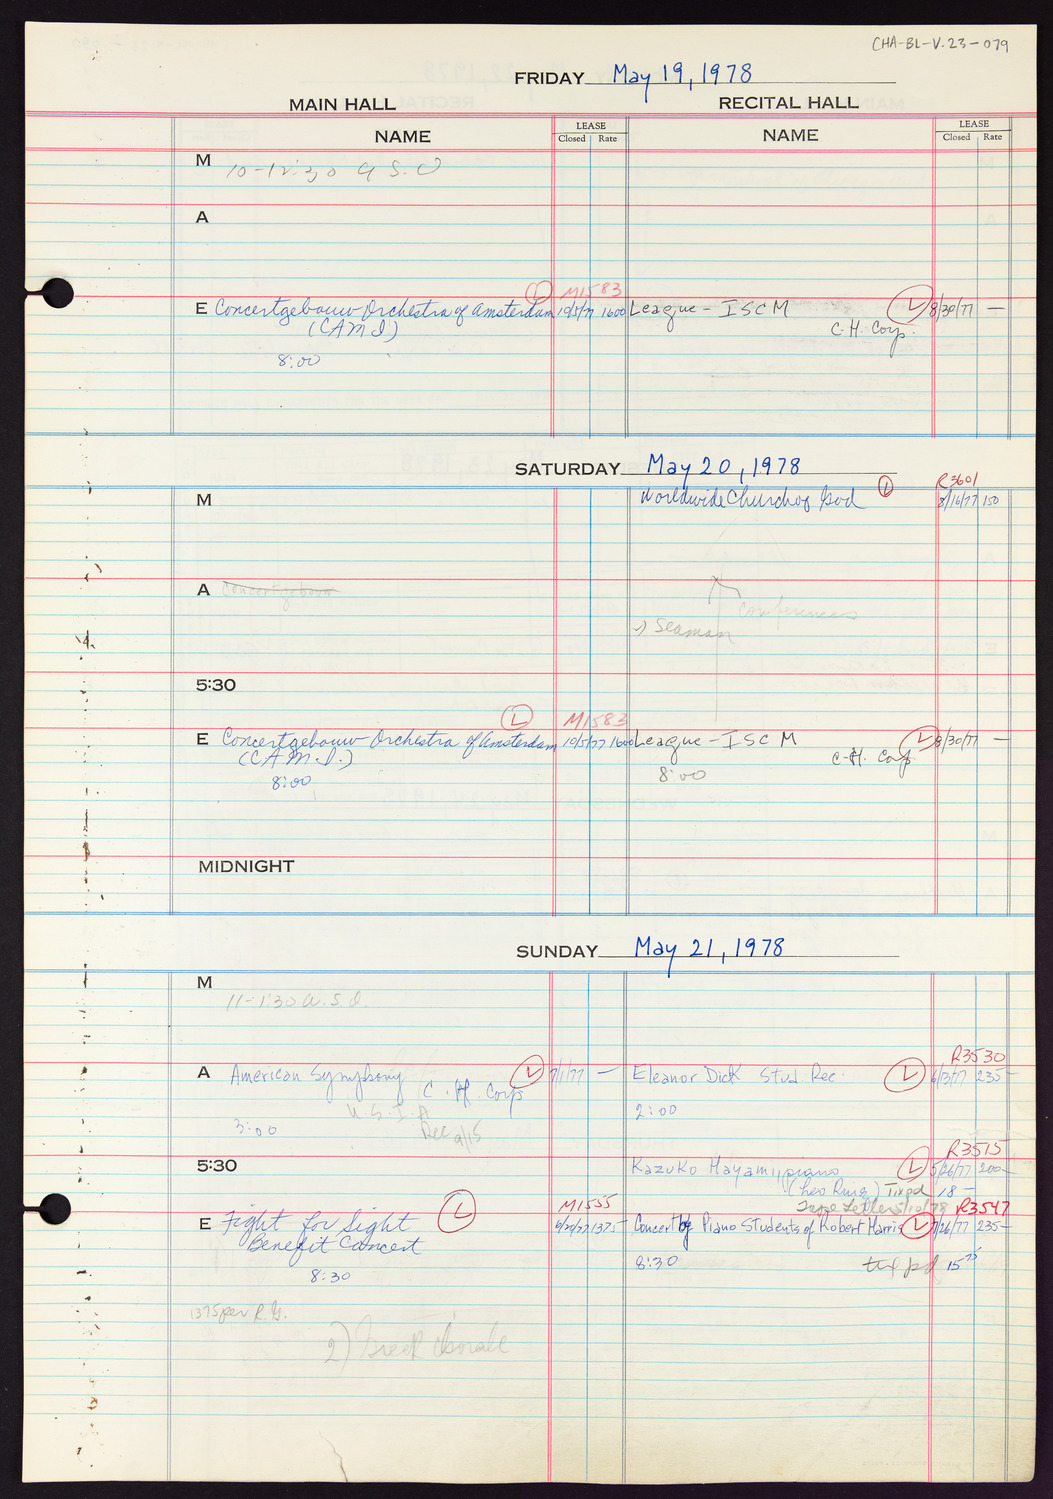 CHA-BL-V.23-079
FRIDAY May 19, 1978
MAIN HALL RECITAL HALL
NAME LEASE Closed Rate NAME LEASE Closed Rate
M 10-12:30 A S O
A
M1583
E Concertgebouw Orchestra of Amsterdam L 10/5/77 1600 League - ISCM L 8/30/77 —
(CAMI) C.H. Corp.
8:00
SATURDAY May 20, 1978
R3601
M Worldwide Church of God L 8/16/77 150
A Concertgebouw
conferences
→ Seaman
5:30
L M1583
E Concertgebouw Orchestra of Amsterdam 10/5/77 1600 League - ISCM L 8/30/77 —
(C.A.M.I.) C.H. Corp
8:00 8:00
MIDNIGHT
SUNDAY May 21, 1978
M
11-1:30 A.S.O.
R3530
A American Symphony L 7/1/77 — Eleanor Dick Stud. Rec. L 6/3/77 235—
C.H. Corp
U.S.I.A 2:00
3:00 Rec 9/15
R3515
5:30 Kazuko Hayami, piano L 5/26/77 200—
(Leo Ruiz) Tix pd 18 —
M1555 Tape Letter 5/10/78 R3547
E Fight for Sight L 6/30/77 1375— Concert by Piano Students of Robert Harris L 7/26/77 235—
Benefit Concert
8:30 8:30 tix pd 15 75
1375 per R.G.
2) Greek Chorale